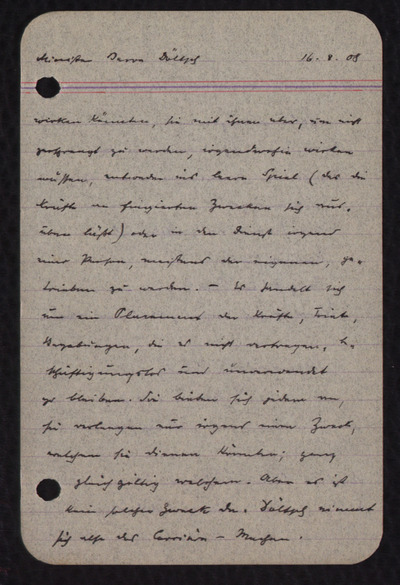 Minister Baron Döltsch 16. 8. 08
wirken könnten, sie mit ihnen aber, um nicht
gesprengt zu werden, irgendwohin wirken
müssen, entweder ins leere Spiel (das die
Kräfte an fingierten Zwecken sich aus-
üben läßt) oder in den Dienst irgend
einer Person, meistens der eigenen, ge-
trieben zu werden. – Es handelt sich
um ein Plus der Kräfte, Triebe,
Begabungen, die es nicht vertragen, be-
schäftigungslos und unverwendet
zu bleiben. Sie bieten sich jedem an,
sie verlangen nur irgend einen Zweck,
welchem sie dienen könnten; ganz
gleichgültig welchem. Aber es ist
kein solcher Zweck da. Döltsch nimmt
sich also das Carrière-Machen.